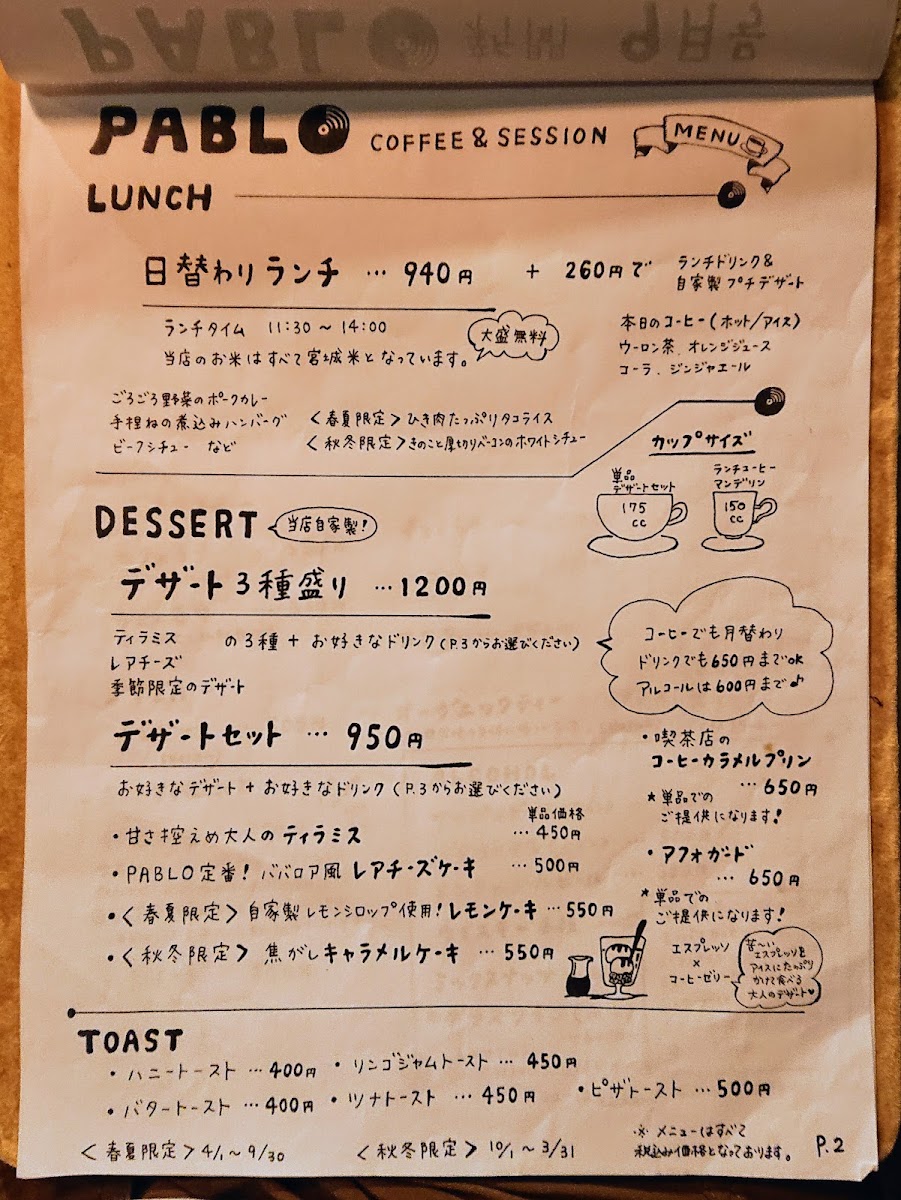 PABLO 新聞 9月号
PABLO COFFEE & SESSION MENU
LUNCH
日替わりランチ … 940円 + 260円で ランチドリンク&
自家製プチデザート
ランチタイム 11:30 〜 14:00
当店のお米はすべて宮城米となっています。
大盛無料
本日のコーヒー(ホット/アイス)
ウーロン茶、オレンジジュース
コーラ、ジンジャエール
ごろごろ野菜のポークカレー
手捏ねの煮込みハンバーグ
ビーフシチュー など
〈春夏限定〉ひき肉たっぷりタコライス
〈秋冬限定〉きのこと厚切りベーコンのホワイトシチュー
カップサイズ
単品
デザートセット
175
cc
ランチコーヒー
マンデリン
150
cc
DESSERT 当店自家製!
デザート3種盛り …1200円
ティラミス
レアチーズ
季節限定のデザート
の3種 + お好きなドリンク(P.3からお選びください)
コーヒーでも月替わり
ドリンクでも650円までOK
アルコールは600円まで♪
デザートセット … 950円
お好きなデザート + お好きなドリンク(P.3からお選びください)
単品価格
・甘さ控えめ大人のティラミス …450円
・PABLO定番! ババロア風レアチーズケーキ …500円
・〈春夏限定〉自家製レモンシロップ使用!レモンケーキ…550円
・〈秋冬限定〉焦がしキャラメルケーキ …550円
・喫茶店の
コーヒーカラメルプリン
…650円
*単品での
ご提供になります!
・アフォガード
… 650円
*単品での
ご提供になります!
エスプレッソ
×
コーヒーゼリー
苦〜い
エスプレッソを
アイスにたっぷり
かけて食べる
大人のデザート♥
TOAST
・ハニートースト …400円
・リンゴジャムトースト … 450円
・バタートースト …400円
・ツナトースト … 450円
・ピザトースト …500円
〈春夏限定〉4/1〜9/30
〈秋冬限定〉10/1〜3/31
※ メニューはすべて
税込み価格となっております。
P.2